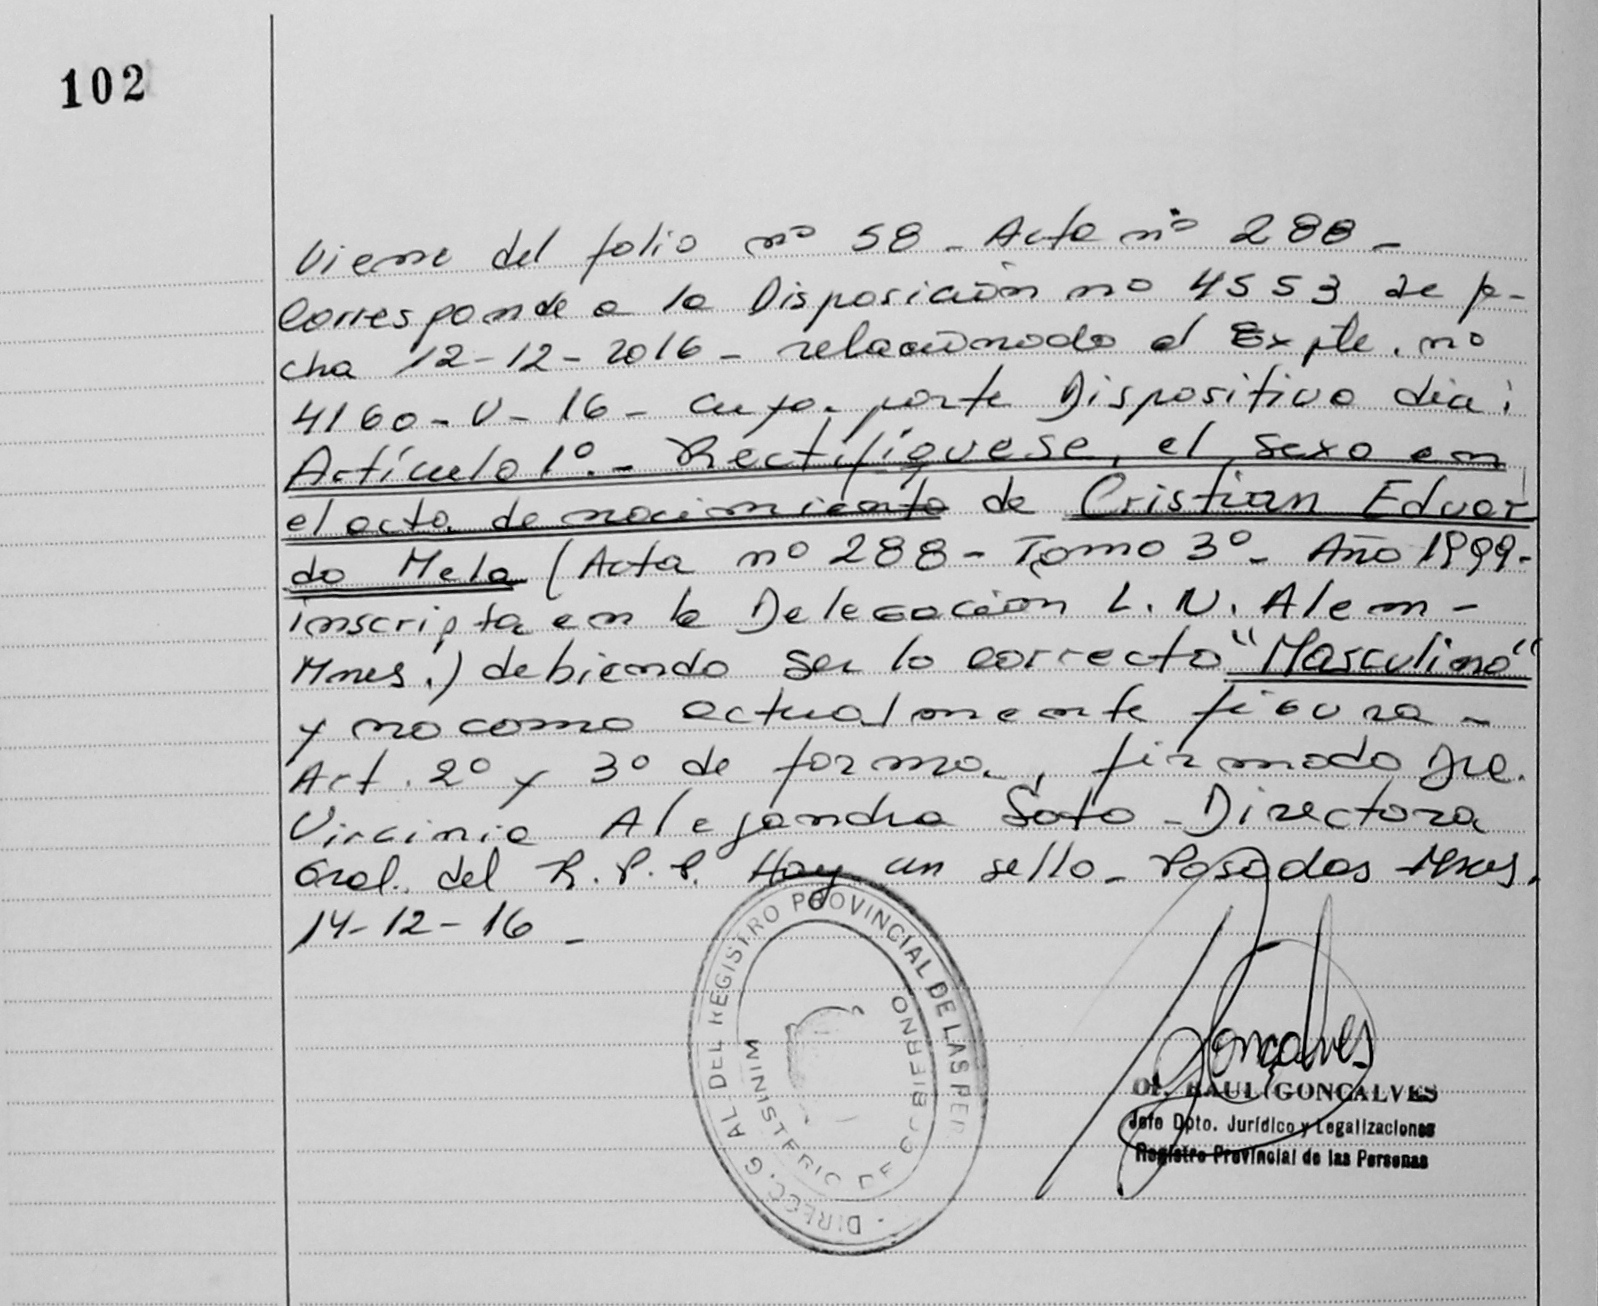 102
Viene del folio nº 58 - Acta nº 288 -
Corresponde a la Disposición nº 4553 de fe-
cha 12-12-2016 - relacionado al Expte. nº
4160-V-16 - cuya parte Dispositiva dice:
Artículo 1º.- Rectifíquese, el sexo en
el acta de nacimiento de Cristian Eduar
do Mela (Acta nº 288 - Tomo 3º - Año 1999-
inscripta en la Delegación L. N. Alem -
Mnes.) debiendo ser lo correcto "Masculino"
y no como actualmente figura -
Art. 2º y 3º de forma, firmado Dra.
Virginia Alejandra Soto - Directora
Gral. del R. P. P. Hay un sello - Posadas Mnes.
14-12-16 -
DIRECC. G AL DEL REGISTRO PROVINCIAL DE LAS PER
MINISTERIO DE GOBIERNO
Goncalves
RAUL GONCALVES
Jefe Dpto. Jurídico y Legalizaciones
Registro Provincial de las Personas